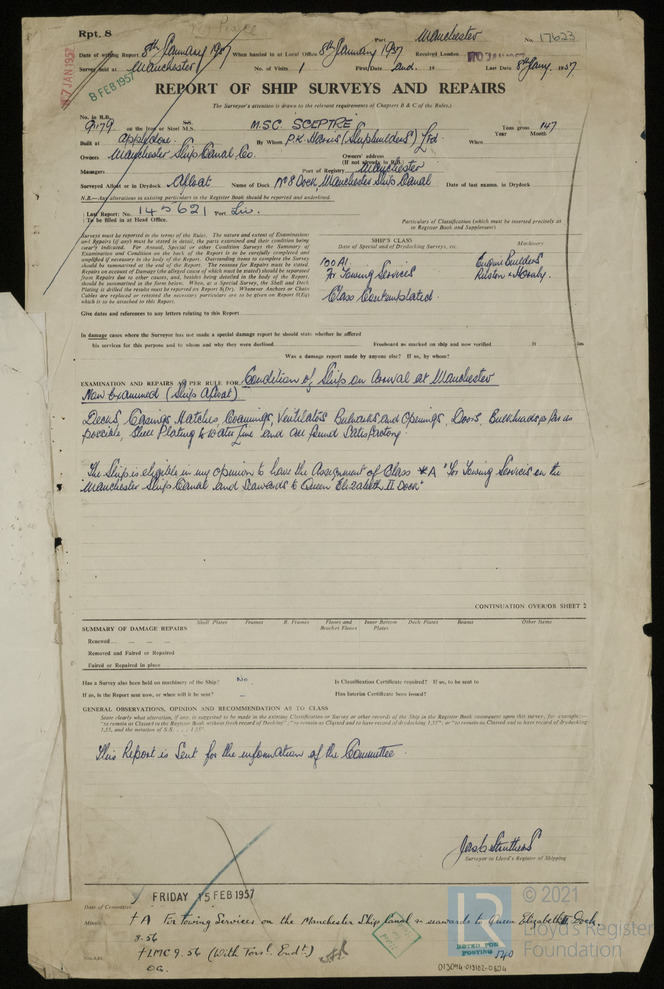 Rpt. 8
Port Manchester No. 17623
Date of writing Report 8th January 1957 When handed in at Local Office 8th January 1957 Received London
Survey held at Manchester No. of Visits 1 First Date and. 19 Last Date 8th Jany. 1957
17 JAN 1957
8 FEB 1957
REPORT OF SHIP SURVEYS AND REPAIRS
(The Surveyor's attention is drawn to the relevant requirements of Chapters B & C of the Rules.)
No. in R.B. on the Iron or Steel M.S. M.S.C. SCEPTRE Tons gross 147
Year Month
Built at Appledore. By Whom P.K. Harris (Shipbuilders) Ltd When
Owners Manchester Ship Canal Co. Owners' address
(If not already in R.B.)
Managers Port of Registry Manchester
Surveyed Afloat or in Drydock Afloat Name of Dock No 8 Dock, Manchester Ship Canal Date of last names. in Drydock
N.B.—Any alterations in existing particulars in the Register Book should be reported and underlined.
Last Report: No. 145621 Port Liv.
To be filled in at Head Office.
Particulars of Classification (which must be inserted precisely as in Register Book and Supplement)
Surveys must be reported in the terms of the Rules. The nature and extent of Examinations and Repairs (if any) must be stated in detail, the parts examined and their condition being clearly indicated. For Annual, Special or other Condition Surveys the Summary of Examination and Condition on the back of the Report is to be carefully completed and amplified if necessary in the body of the Report. Outstanding items to complete the Survey should be summarised at the end of the Report. The reasons for Repairs must be stated. Repairs on account of Damage (the alleged cause of which must be stated) should be separated from Repairs due to other causes, and, besides being detailed in the body of the Report, should be summarised in the form below. When, at a Special Survey, the Shell and Deck Plating is drilled the results must be reported on Report 8(Dr). Whenever Anchors or Chain Cables are replaced or renewed the necessary particulars are to be given on Report 8(Eq) which is to be attached to this Report.
SHIP'S CLASS
Date of Special and of Drydocking Surveys, etc.
Machinery
100A1
For Towing Services
Class Contemplated.
Engine Builders
Ruston & Hornsby.
Give dates and references to any letters relating to this Report
In damage cases where the Surveyor has not made a special damage report he should state whether he offered
his services for this purpose and to whom and why they were declined. Freeboard as marked on ship and now verified ft ins
Was a damage report made by anyone else? If so, by whom?
EXAMINATION AND REPAIRS AS PER RULE FOR Condition of Ship on arrival at Manchester
Now Examined (Ship Afloat)
Decks, Casings, Hatches, Coamings, Ventilators, Bulwarks and Openings, Doors, Bulkheads as far as
possible, Shell Plating to Water Line and all found Satisfactory.
The Ship is eligible in my opinion to have the Assignment of Class ✠A "For Towing Services on the
Manchester Ship Canal and Seawards to Queen Elizabeth II Dock"
CONTINUATION OVER/OR SHEET 2
SUMMARY OF DAMAGE REPAIRS Shell Plates Frames R. Frames Floors and Bracket Floors Inner Bottom Plates Deck Plates Beams Other Items
Renewed
Removed and Faired or Repaired
Faired or Repaired in place
Has a Survey also been held on machinery of the Ship? No Is Classification Certificate required? If so, to be sent to
If so, is the Report sent now, or when will it be sent? — Has Interim Certificate been issued?
GENERAL OBSERVATIONS, OPINION AND RECOMMENDATION AS TO CLASS
This Report is Sent for the information of the Committee.
Surveyor to Lloyd's Register of Shipping
Date of Committee FRIDAY 15 FEB 1957
Minute ✠A For Towing Services on the Manchester Ship Canal & seawards to Queen Elizabeth II Dock
9.56
✠LMC 9.56 (With Torsl. Endt.)
OG.
NOTED FOR
POSTING
LR
© 2021
Lloyd's Register
Foundation